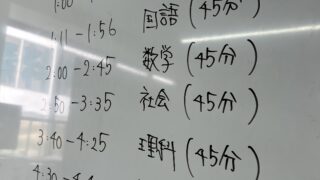 1:00
国語 (45分)
1:11 - 1:56
数学 (45分)
2:00 - 2:45
社会 (45分)
2:50 - 3:35
理科 (45分)
3:40 - 4:25
4:30 -